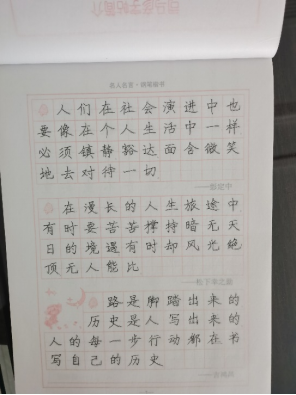 名人名言·钢笔楷书
人们在社会演进中也
要像在个人生活中一样
必须镇静豁达面含微笑
地去对待一切
在漫长的人生旅途中
有时要苦苦撑持暗无天
日的境遇有时却风光绝
顶无人能比
——松下幸之助
路是脚踏出来的
历史是人写出来的
人的每一步行动都在书
写自己的历史